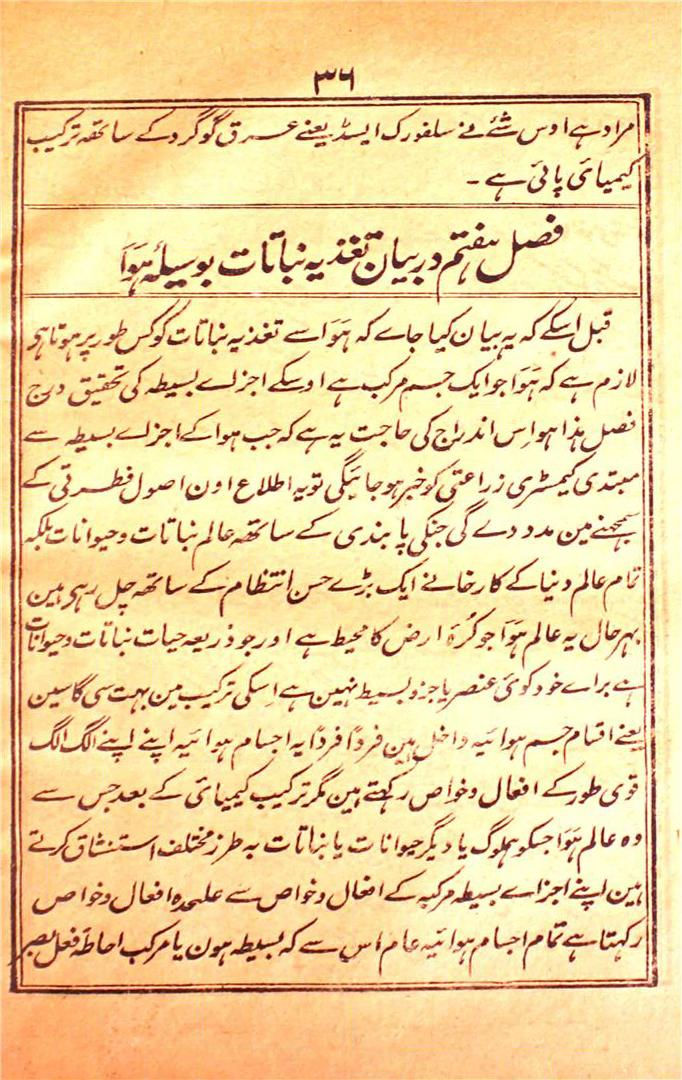 ۳۶
مراد ہے اوس شئے نے سلفورک ایسڈ یعنے عرق گوگرد کے ساتھہ ترکیب
کیمیائی پائی ہے ۔
فصل ہفتم در بیان تغذیہ نباتات بوسیلۂ ہوَا
قبل اسکے کہ یہ بیان کیا جاے کہ ہوَا سے تغذیہ نباتات کو کس طور پر ہوتا ہی
لازم ہے کہ ہوَا جو ایک جسم مرکب ہے اوسکے اجزاے بسیطہ کی تحقیق درج
فصل ہذا ہو اِس اندراج کی حاجت یہ ہے کہ جب ہوا کے اجزاے بسیطہ سے
مبتدی کیمسٹری زراعتی کو خبر ہو جائیگی تو یہ اطلاع اون اصول فطرتی کے
سمجھنے مین مدد دے گی جنکی پابندی کے ساتھہ عالم نباتات و حیوانات بلکہ
تمام عالم دنیا کے کارخانے ایک بڑے حسن انتظام کے ساتھہ چل رہی ہین
بہر حال یہ عالم ہوَا جو کُرۂ ارض کا محیط ہے اور جو ذریعہ حیات نباتات و حیوانات
ہے براے خود کوئی عنصر یا جزو بسیط نہین ہے اِسکی ترکیب مین بہت سی گاسین
یعنے اقسام جسم ہوائیہ داخل ہین فرداً فرداً یہ اجسام ہوائیہ اپنے اپنے الگ الگ
قوی طور کے افعال و خواص رکھتے ہین مگر ترکیب کیمیائی کے بعد جس سے
وہ عالم ہوَا جسکو ہملوگ یا دیگر حیوانات یا نباتات بہ طرز مختلف استنشاق کرتے
ہین اپنے اجزاے بسیطہ مرکبہ کے افعال و خواص سے علیحدہ افعال و خواص
رکہتا ہے تمام اجسام ہوائیہ عام اس سے کہ بسیطہ ہون یا مرکب احاطۂ فعل بصر